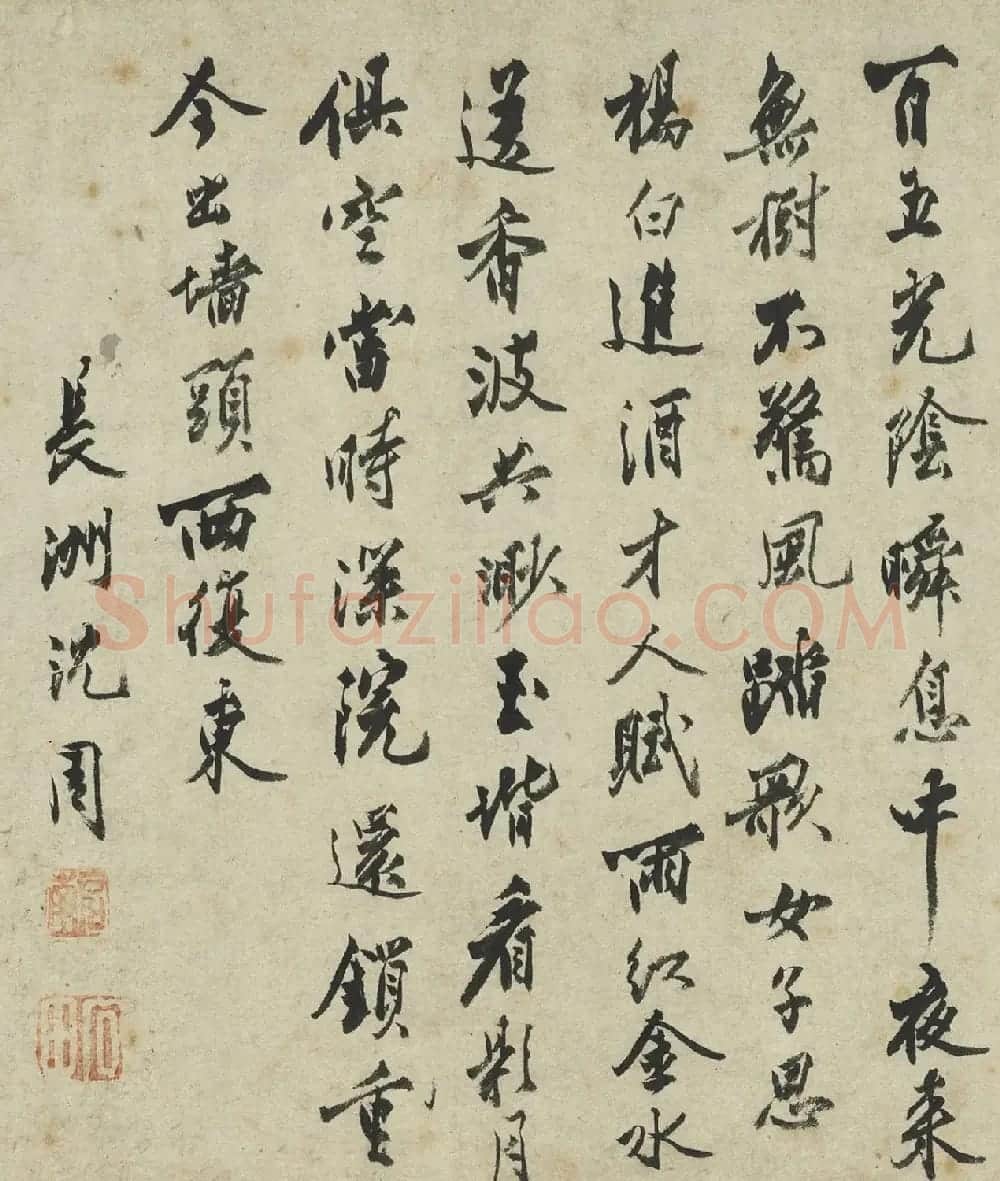 百五光陰瞬息中夜来
無樹不驚風踏歌女子思
楊白進酒才人賦雨紅金水
送香波共渺玉堦看影月
俱空當時深院還鎖重
今出墻頭西復東
長洲沈周
Shufaziliao.COM